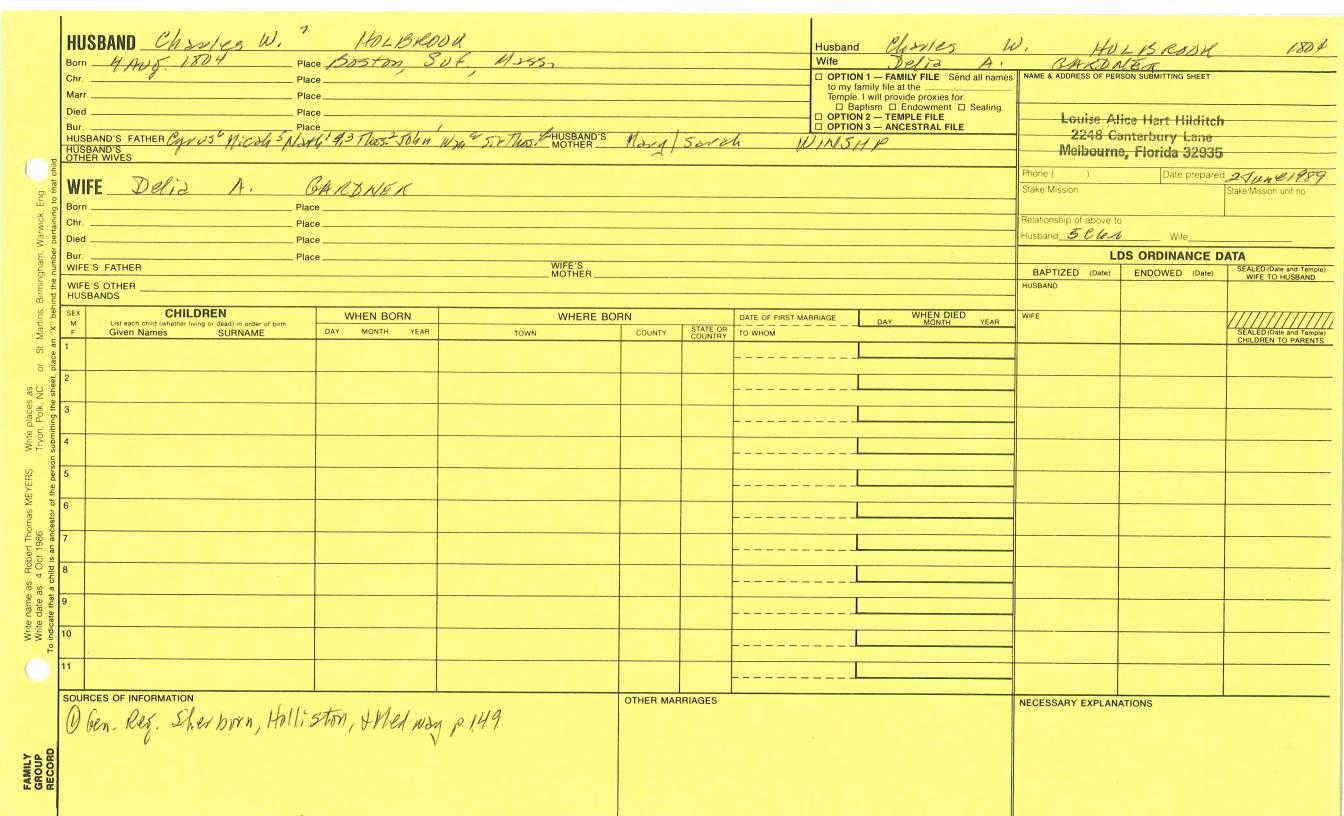 HUSBAND Charles W. 7 HOLBROOK
Born 4 Aug. 1804 Place Boston, Suf., Mass.
Chr. Place
Marr. Place
Died Place
Bur. Place
HUSBAND'S FATHER Cyrus 6 Micah 5 Thos. 2 John Wm Sir Thos. HUSBAND'S MOTHER Mary / Sarah WINSHP
HUSBAND'S OTHER WIVES
Husband Charles W. HOLBROOK 1804
Wife Delia A. GARDNER
☐ OPTION 1 — FAMILY FILE Send all names
to my family file at the
Temple. I will provide proxies for:
☐ Baptism ☐ Endowment ☐ Sealing.
☐ OPTION 2 — TEMPLE FILE
☐ OPTION 3 — ANCESTRAL FILE
NAME & ADDRESS OF PERSON SUBMITTING SHEET
Louise Alice Hart Hilditch
2248 Canterbury Lane
Melbourne, Florida 32935
Phone ( ) Date prepared 2 June 1989
Stake/Mission Stake/Mission unit no
Relationship of above to
Husband Wife
WIFE Delia A. GARDNER
Born Place
Chr. Place
Died Place
Bur. Place
WIFE'S FATHER WIFE'S MOTHER
WIFE'S OTHER HUSBANDS
LDS ORDINANCE DATA
BAPTIZED (Date) ENDOWED (Date) SEALED (Date and Temple) WIFE TO HUSBAND
HUSBAND
WIFE
SEALED (Date and Temple) CHILDREN TO PARENTS
SEX M F
CHILDREN
List each child (whether living or dead) in order of birth
Given Names SURNAME
WHEN BORN
DAY MONTH YEAR
WHERE BORN
TOWN COUNTY STATE OR COUNTRY
DATE OF FIRST MARRIAGE
TO WHOM
WHEN DIED
DAY MONTH YEAR
1
2
3
4
5
6
7
8
9
10
11
SOURCES OF INFORMATION
① Gen. Reg. Sherborn, Holliston, & Medway p 149
OTHER MARRIAGES
NECESSARY EXPLANATIONS
Write name as Robert Thomas MEYERS Write places as Tryon, Polk, NC or St. Martins, Birmingham, Warwick, Eng
Write date as 4 Oct 1986
To indicate that a child is an ancestor of the person submitting the sheet, place an "X" behind the number pertaining to that child
FAMILY
GROUP
RECORD